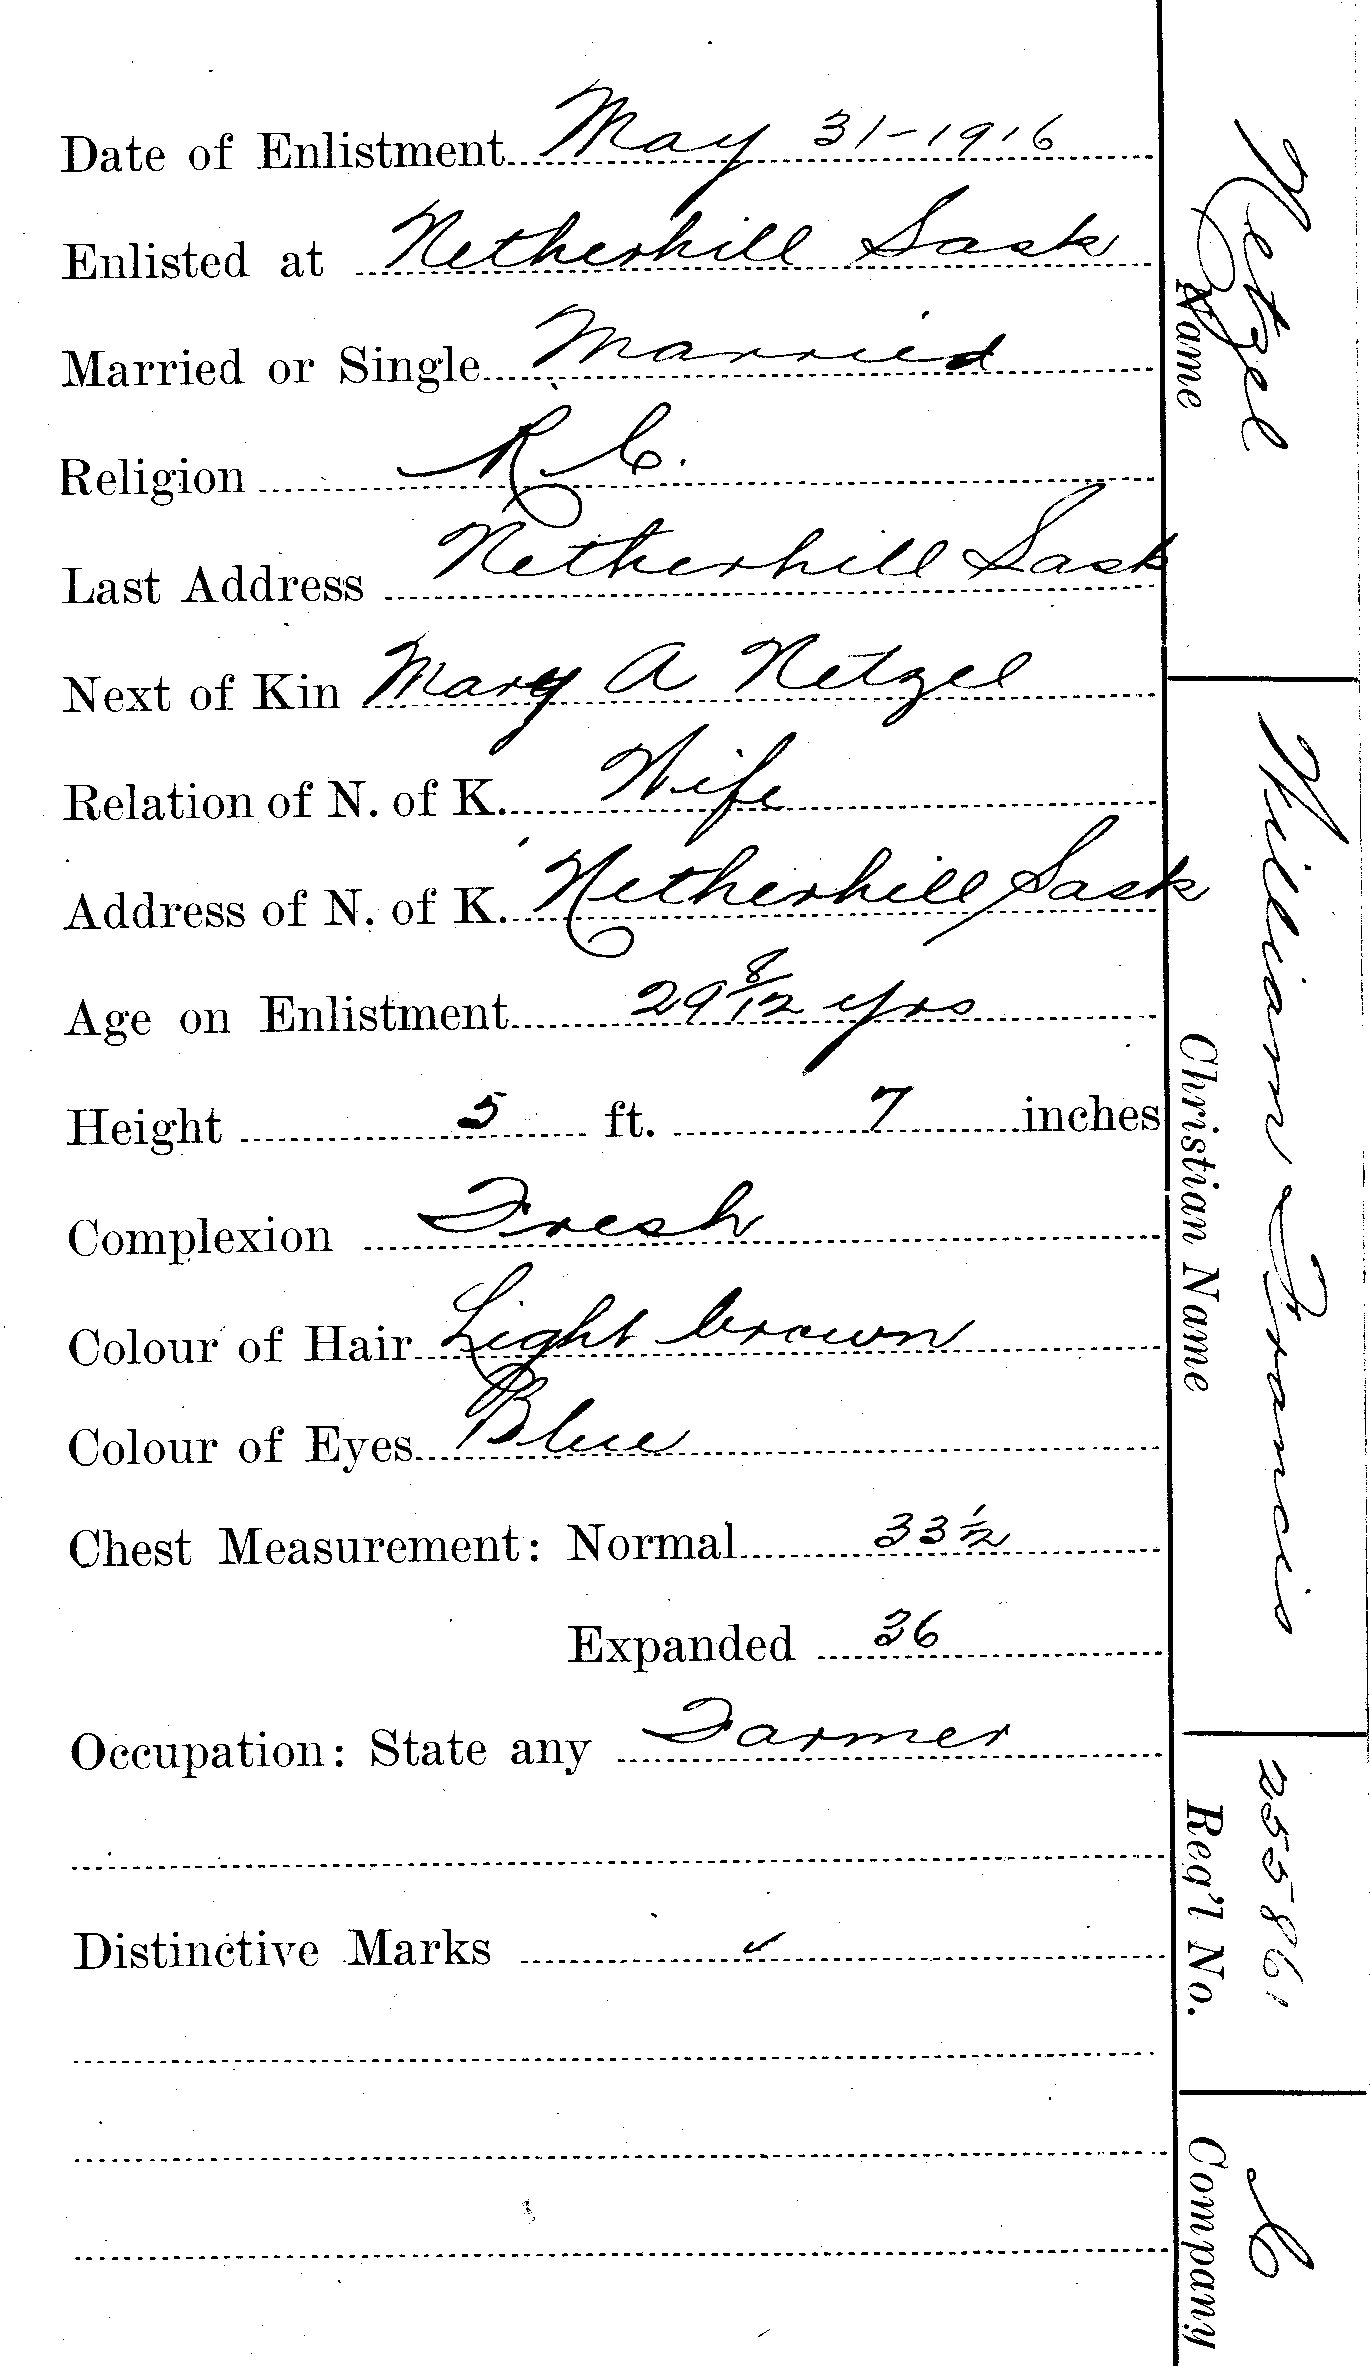 Date of Enlistment May 31-1916
Enlisted at Netherhill Sask
Married or Single Married
Religion R.C.
Last Address Netherhill Sask
Next of Kin Mary A Netzel
Relation of N. of K. Wife
Address of N. of K. Netherhill Sask
Age on Enlistment 29 8/12 yrs
Height 5 ft. 7 inches
Complexion Fresh
Colour of Hair Light brown
Colour of Eyes Blue
Chest Measurement: Normal 33 1/2
Expanded 36
Occupation: State any Farmer
Distinctive Marks ✓
Netzel
Name
William Francis
Christian Name
255861
Reg'l No.
C
Company